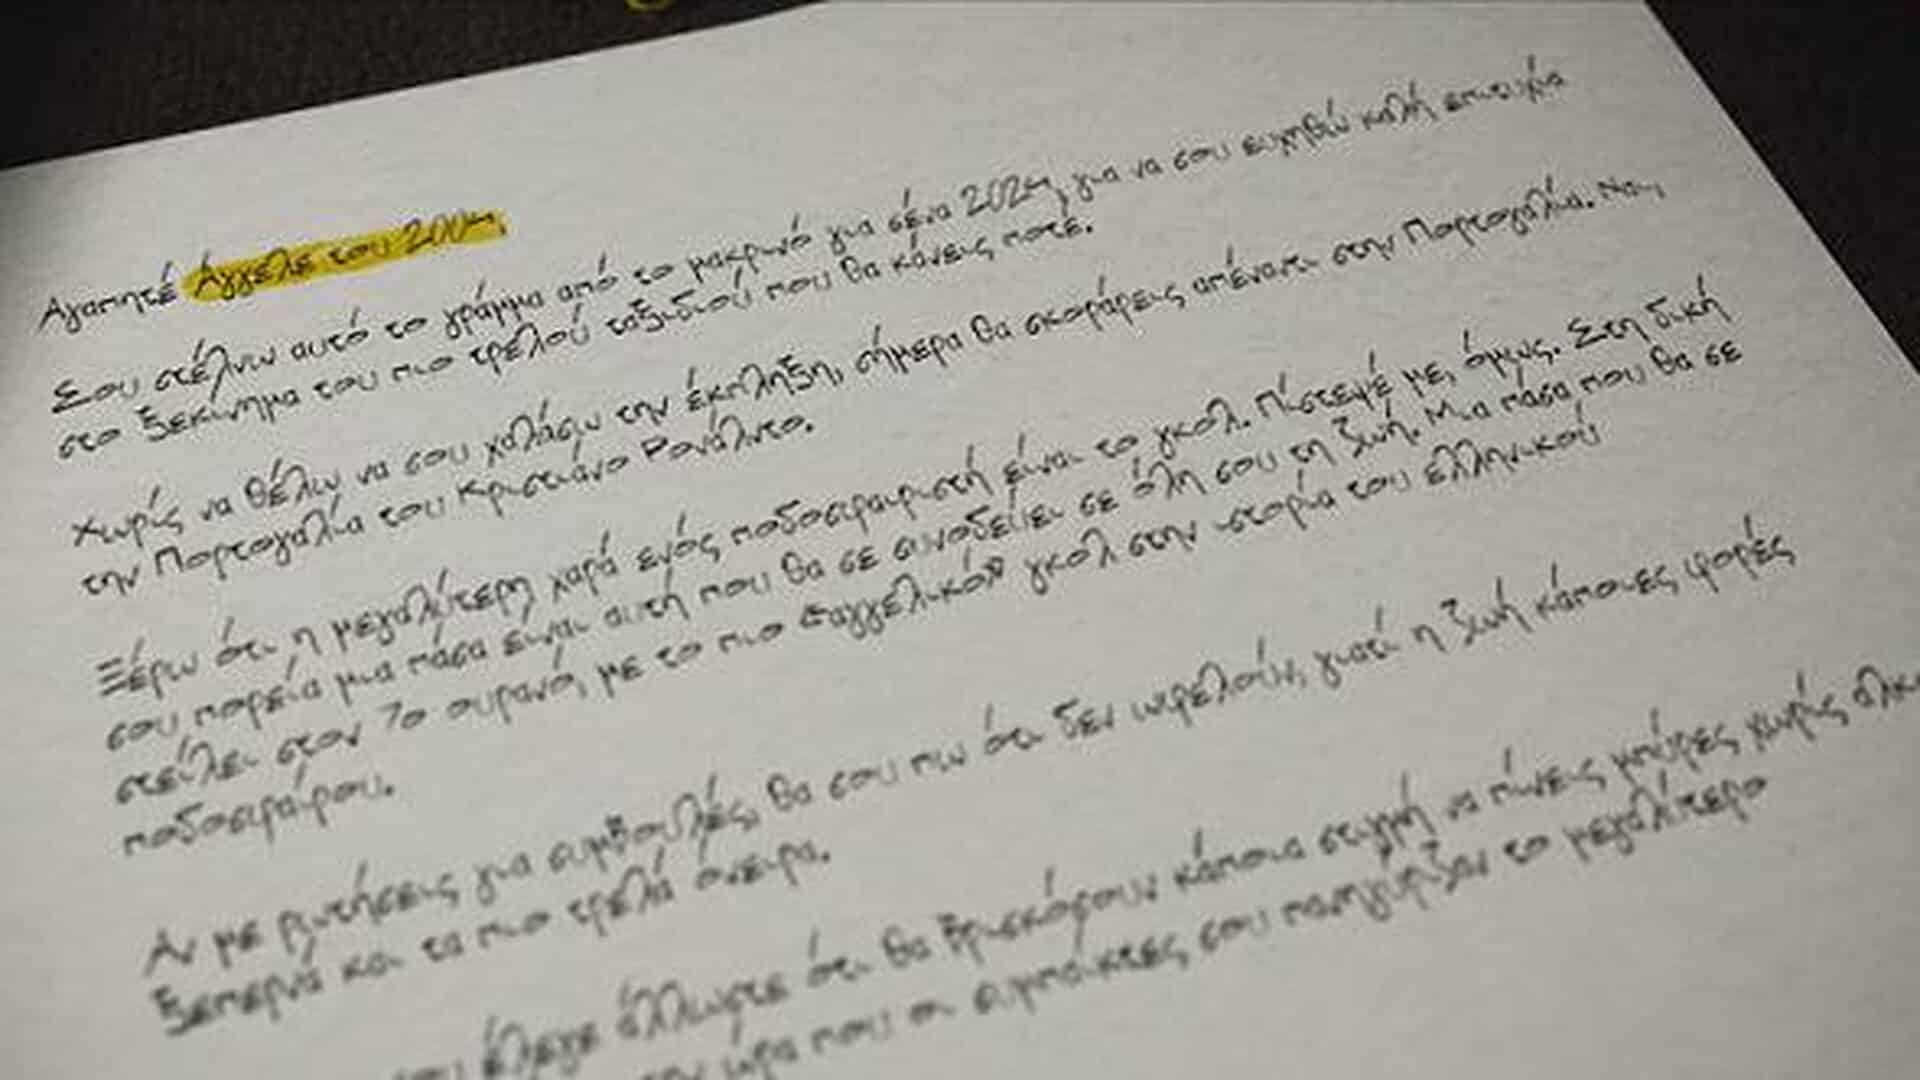 Αγαπητέ Άγγελε του 2004,
Σου στέλνω αυτό το γράμμα από το μακρινό για σένα 2024, για να σου ευχηθώ καλή επιτυχία
στο ξεκίνημα του πιο τρελού ταξιδιού που θα κάνεις ποτέ.
Χωρίς να θέλω να σου χαλάσω την έκπληξη, σήμερα θα σκοράρεις απέναντι στην Πορτογαλία. Ναι,
την Πορτογαλία του Κριστιάνο Ρονάλντο.
Ξέρω ότι η μεγαλύτερη χαρά ενός ποδοσφαιριστή είναι το γκολ. Πίστεψέ με, όμως. Στη δική
σου πορεία μια πάσα είναι αυτή που θα σε συνοδεύει σε όλη σου τη ζωή. Μια πάσα που θα σε
στείλει στον 7ο ουρανό, με το πιο «αγγελικό» γκολ στην ιστορία του ελληνικού
ποδοσφαίρου.
Αν με ρωτήσεις για συμβουλές, θα σου πω ότι δεν ωφελούν, γιατί η ζωή κάποιες φορές
ξεπερνά και τα πιο τρελά όνειρα.
σου έλεγε άλλωστε ότι θα βρισκόσουν κάποια στιγμή να πίνεις μπύρες χωρίς
την ώρα που οι συμπαίκτες σου πανηγύριζαν το μεγαλύτερο